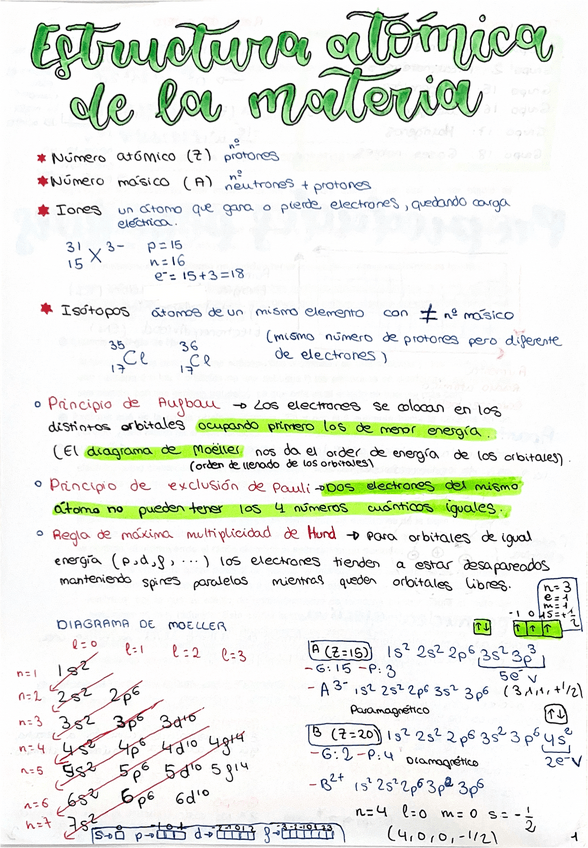 Estructura atómica
de la materia
* Número atómico (Z) nº protones
* Número másico (A) nº neutrones + protones
* Iones un átomo que gana o pierde electrones, quedando carga
eléctrica.
31 15 X 3- p=15
n=16
e⁻= 15+3=18
* Isótopos átomos de un mismo elemento con ≠ nº másico
(mismo número de protones pero diferente
de electrones)
35 17 Cl 36 17 Cl
Principio de Aufbau → Los electrones se colocan en los
distintos orbitales ocupando primero los de menor energía.
(El diagrama de Moëller nos da el order de energía de los orbitales).
(orden de llenado de los orbitales)
Principio de exclusión de Pauli → Dos electrones del mismo
átomo no pueden tener los 4 números cuánticos iguales.
Regla de máxima multiplicidad de Hund → Para orbitales de igual
energía (p,d,f,...) los electrones tienden a estar desapareados
manteniendo spines paralelos mientras queden orbitales libres.
n=3
e=1
m=1
s=+1/2
-1 0 1
↑↓ ↑ ↑ ↑
DIAGRAMA DE MOELLER
l=0 l=1 l=2 l=3
n=1 1s²
n=2 2s² 2p⁶
n=3 3s² 3p⁶ 3d¹⁰
n=4 4s² 4p⁶ 4d¹⁰ 4f¹⁴
n=5 5s² 5p⁶ 5d¹⁰ 5f¹⁴
n=6 6s² 6p⁶ 6d¹⁰
n=7 7s²
s→ p→ d→ f→
A (Z=15) 1s² 2s² 2p⁶ 3s² 3p³
-G:15 -P:3 5e⁻ v
-A³⁻ 1s² 2s² 2p⁶ 3s² 3p⁶ (3,1,1,+1/2)
Paramagnético
↑↓
B (Z=20) 1s² 2s² 2p⁶ 3s² 3p⁶ 4s²
-G:2 -P:4 Diamagnético 2e⁻ v
-B²⁺ 1s² 2s² 2p⁶ 3p² 3p⁶
n=4 l=0 m=0 s=-1/2
(4,0,0,-1/2)
1